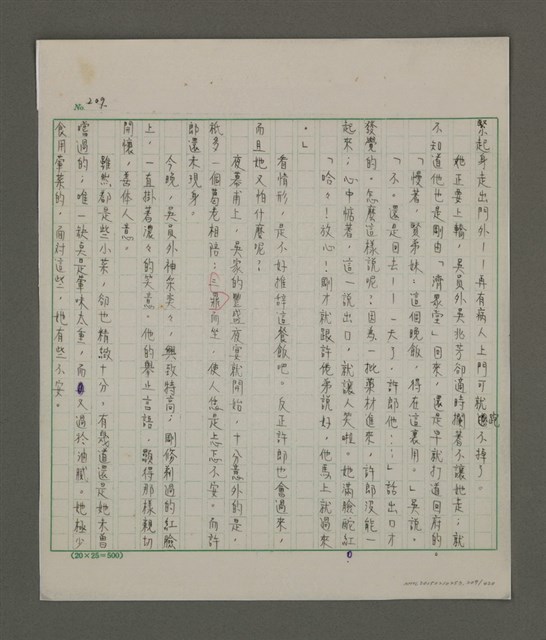 No. 209.
緊起身走出門外！再有病人上門可就跑不掉了。
她正要上轎，吳員外吳兆芳卻適時攔著不讓她走；就
不知道他也是剛由「濟眾堂」回來，還是早就打道回府的。
「慢著，賢弟妹！這個晚飯，得在這裏用。」吳說。
「不。還是回去——一天了，許郎他……」話出口才
發覺的，怎麼這樣說呢？因為一批藥材進來，許郎沒能一
起來；心中惦著，這一說出口，就讓人笑啦。她滿臉酡紅。
「哈々！放心！剛才就跟許佬弟說好，他馬上就過來
。」
看情形，是不好推辭這餐飯吧。反正許郎也會過來，
而且她又怕什麼呢？
夜幕甫上，吳家的豐盛夜宴就開始，十分意外的是，
祇多一個葛老相陪；三品而坐，使人總是上忐不安。而許
郎還未現身。
今晚，吳員外神采奕々，興致特高；剛修剃過的紅臉
上，一直掛著濃々的笑意。他的舉止言語，顯得那樣親切
開懷，善体人意。
雖然都是些小菜，卻也精緻十分，有幾道還是她未曾
嚐過的；唯一缺點是葷味太重，而又過於油膩。她極少
食用葷菜的，面對這些，她有些不安。
(20×25=500)